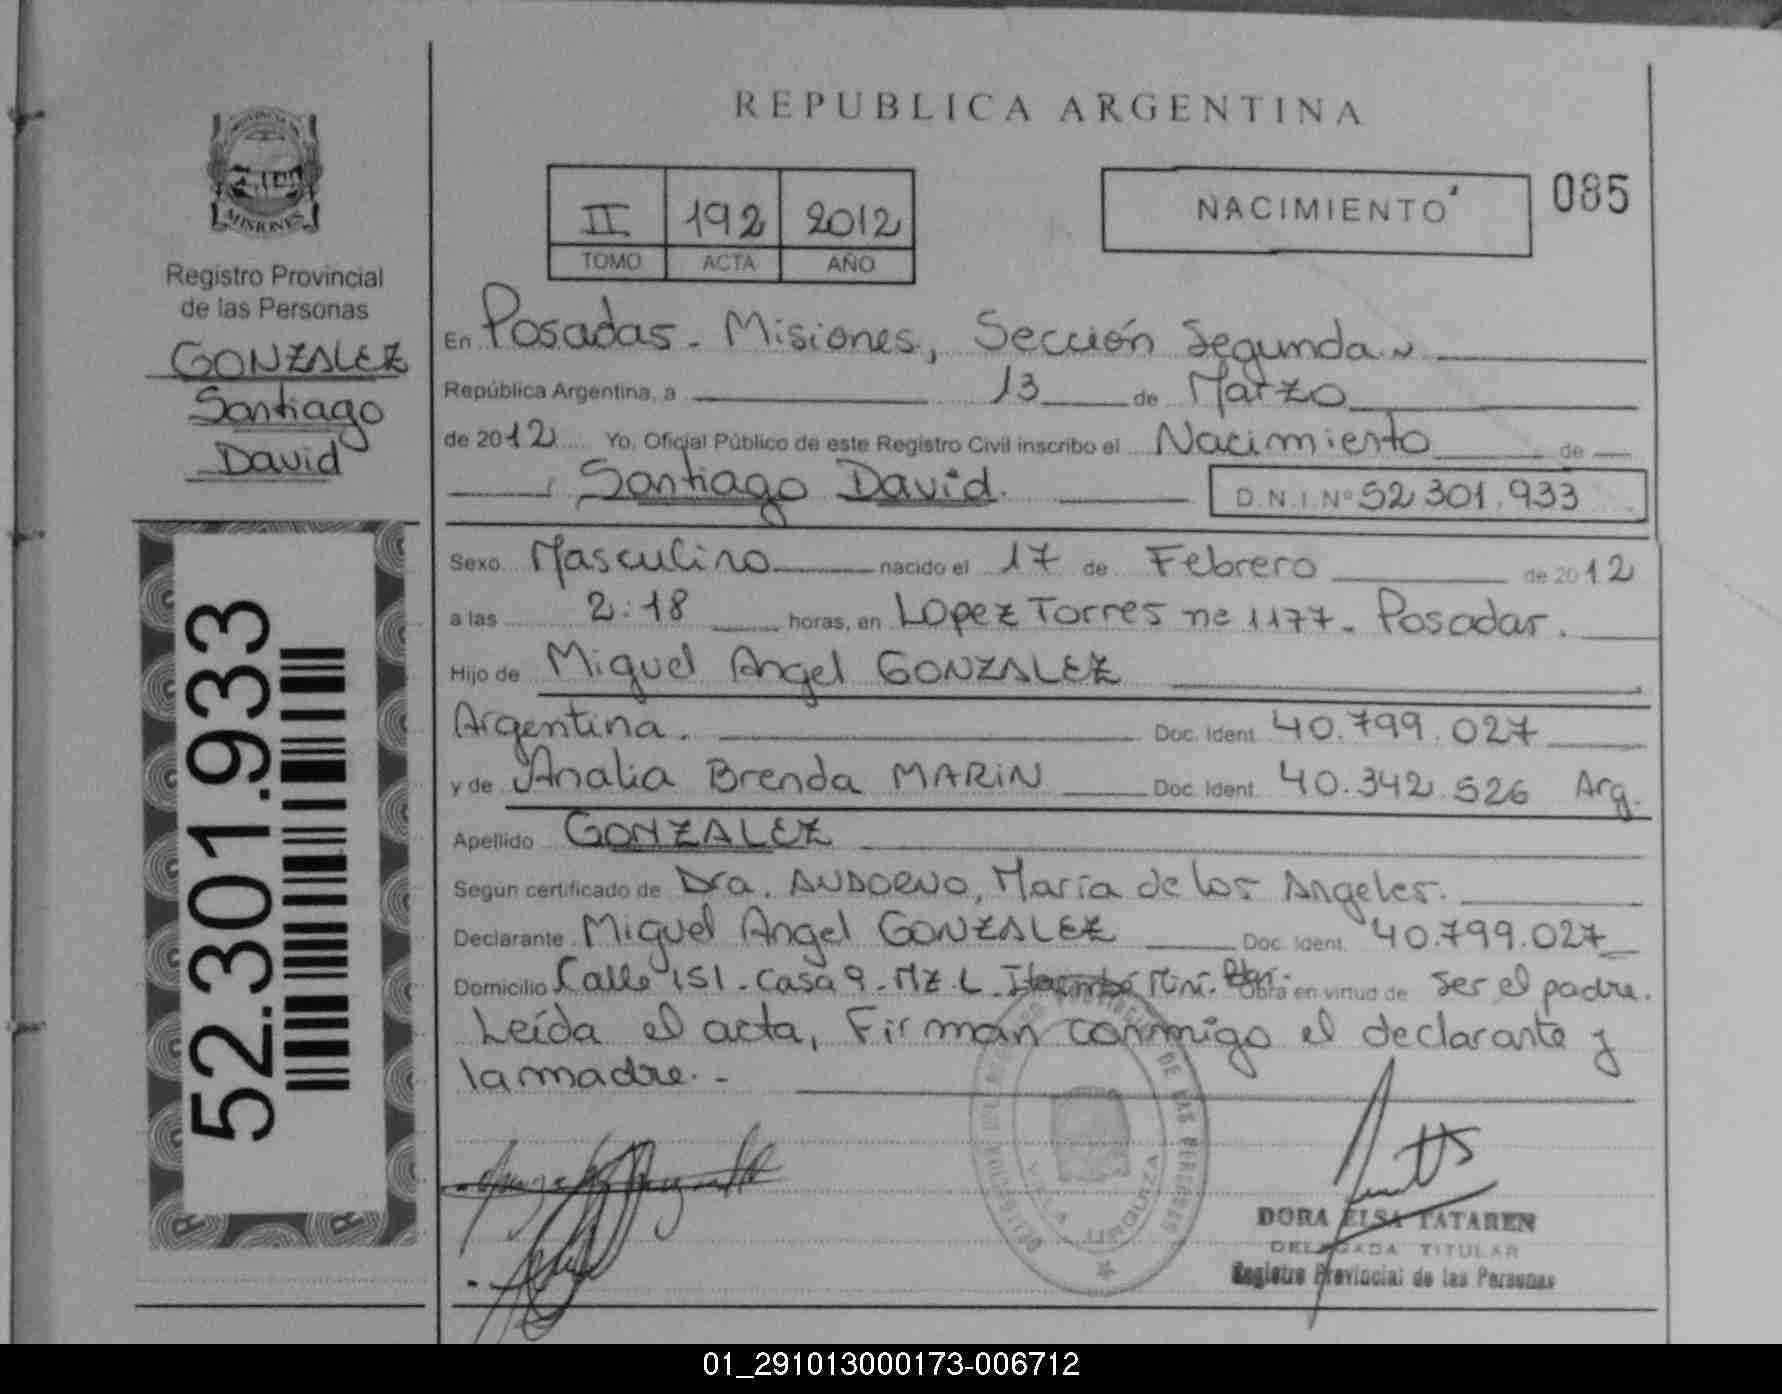 REPUBLICA ARGENTINA
II 192 2012
TOMO ACTA AÑO
NACIMIENTO
085
MISIONES
Registro Provincial
de las Personas
GONZALEZ
Santiago
David
52.301.933
En Posadas - Misiones, Sección Segunda
República Argentina, a 13 de Marzo
de 2012 Yo, Oficial Público de este Registro Civil inscribo el Nacimiento de
Santiago David. D.N.I. Nº 52 301.933
Sexo Masculino nacido el 17 de Febrero de 2012
a las 2:18 horas, en Lopez Torres nº 1177 - Posadas.
Hijo de Miguel Angel GONZALEZ
Argentina. Doc. Ident. 40.799.027
y de Analia Brenda MARIN Doc. Ident. 40.342.526 Arg.
Apellido GONZALEZ
Según certificado de Dra. ANDORNO, María de los Angeles.
Declarante Miguel Angel GONZALEZ Doc. Ident. 40.799.027
Domicilio Calle 151 - Casa 9 - Mz L - Itaembé Miní. Obra en virtud de ser el padre.
Leída el acta, Firman conmigo el declarante y
la madre. -
DE LAS PERSONAS
VILLA URQUIZA
DORA ELSA TATAREN
DELEGADA TITULAR
Registro Provincial de las Personas
01_291013000173-006712